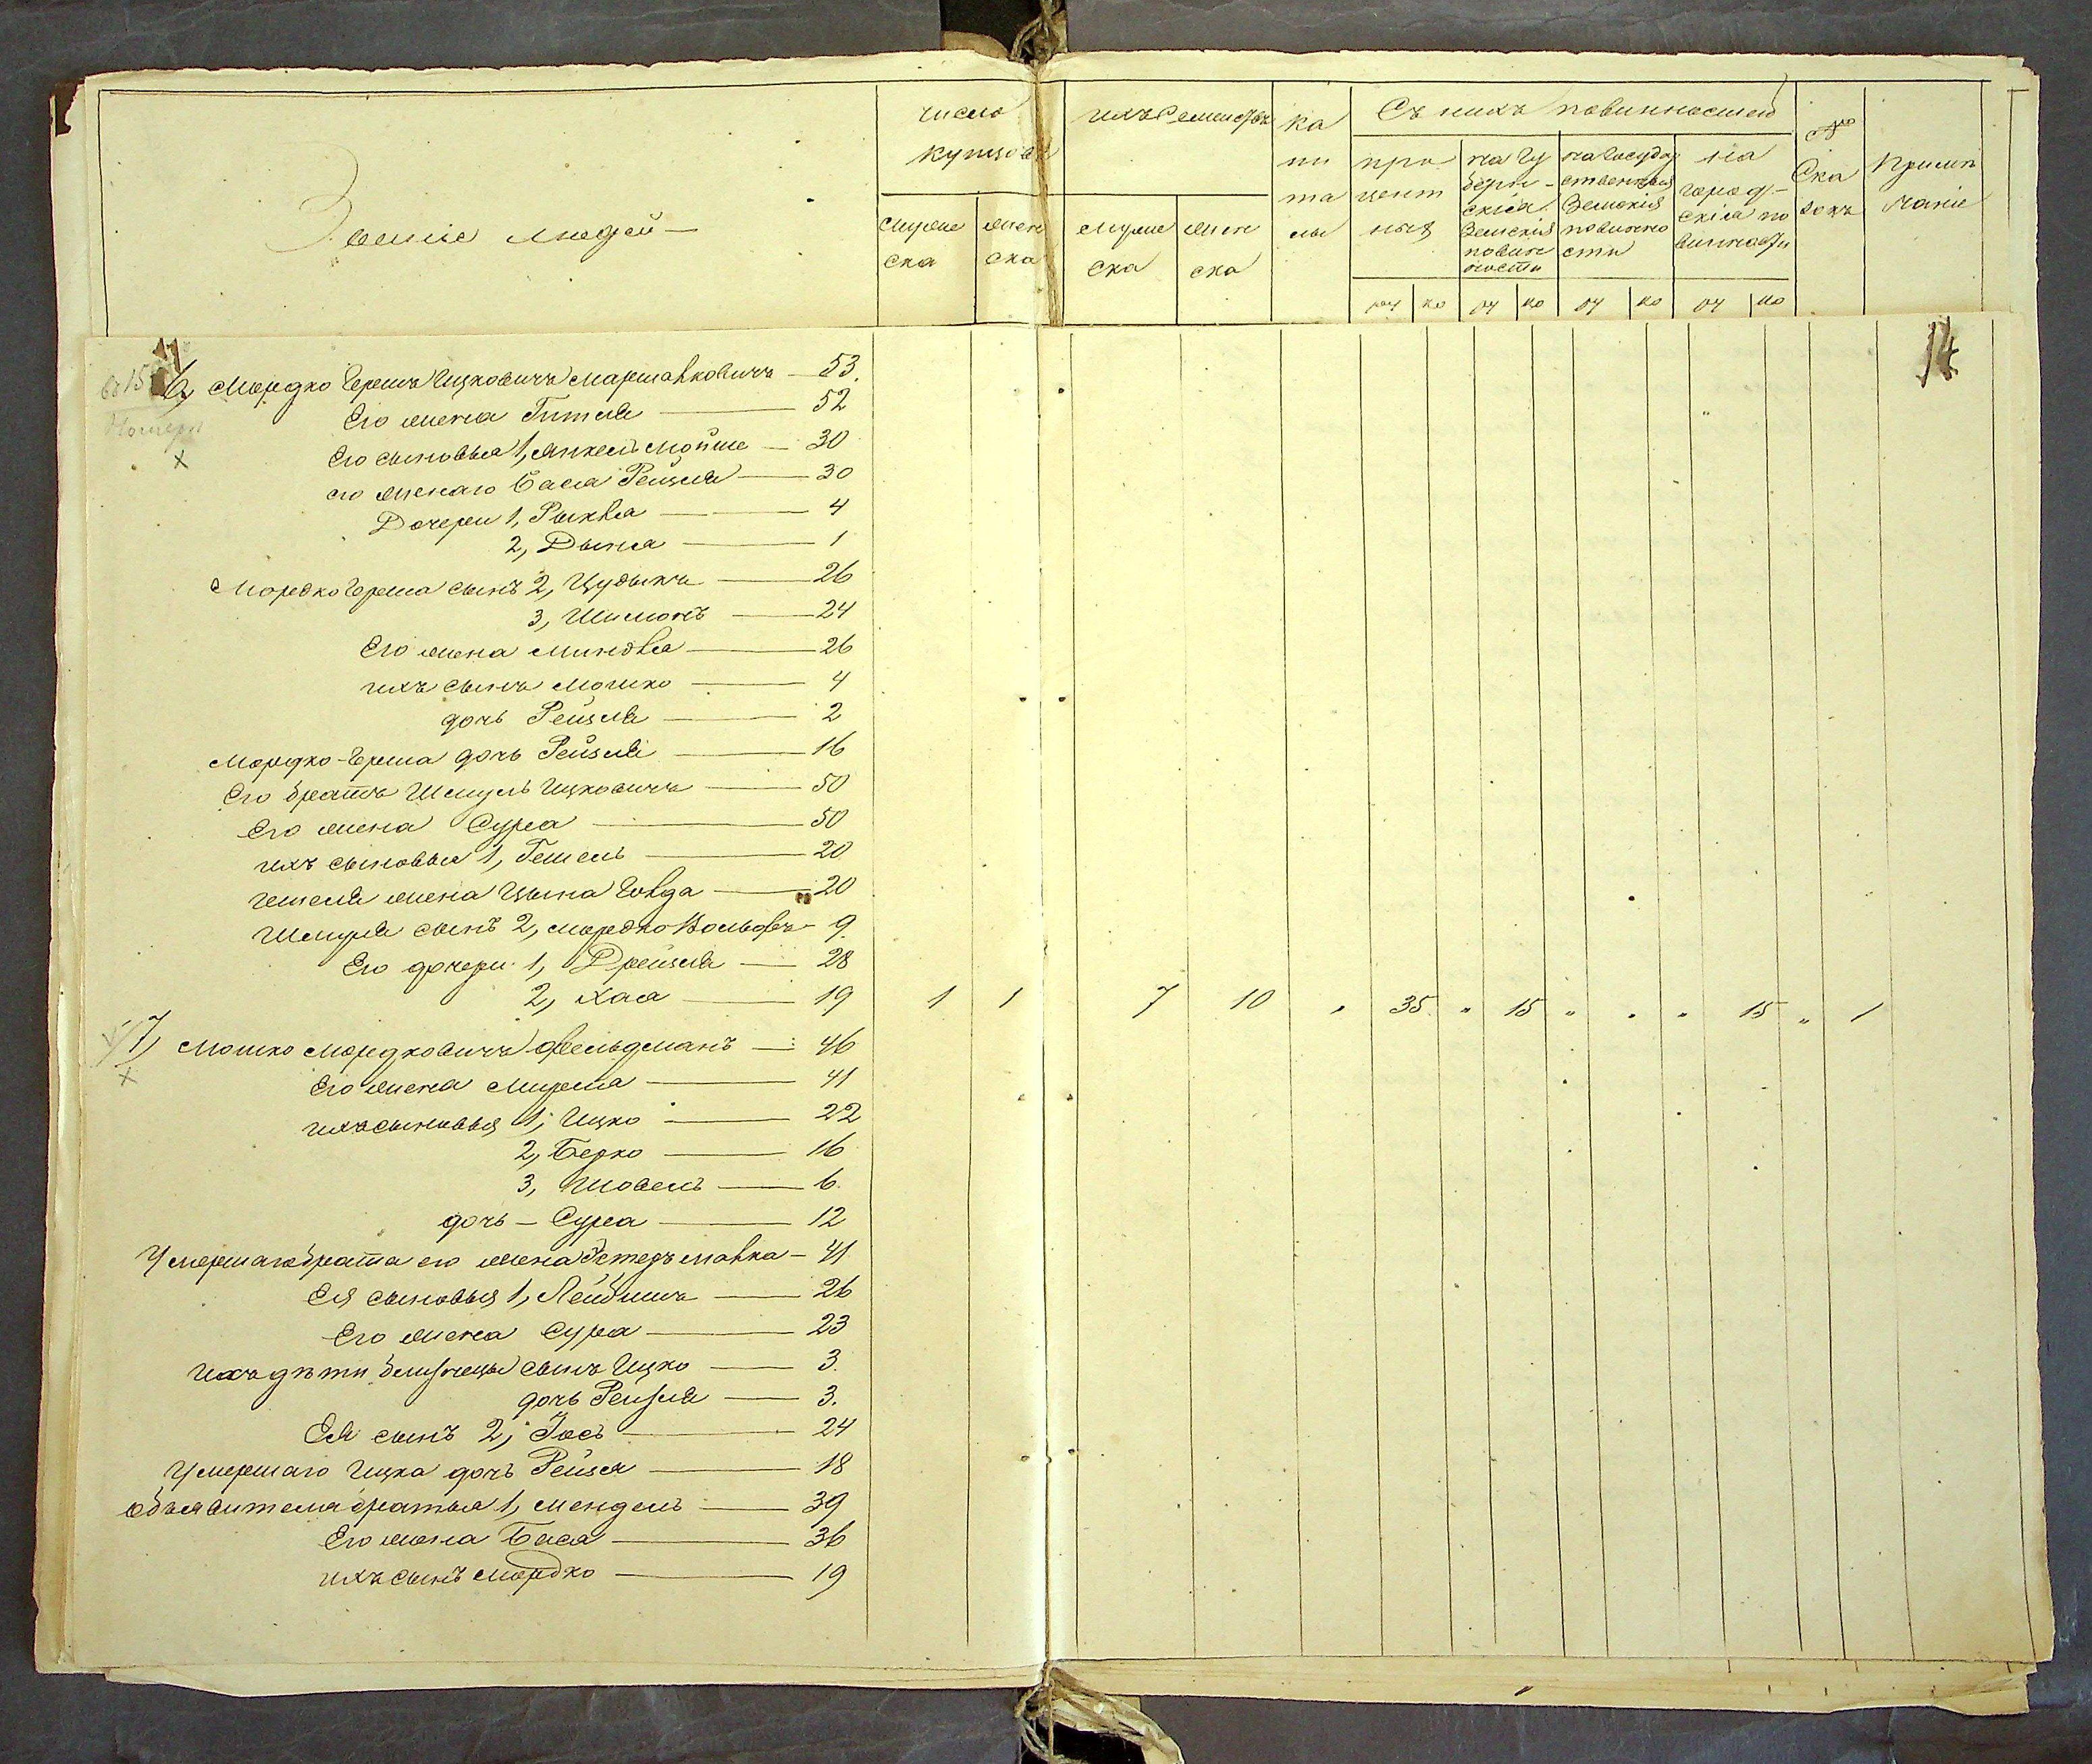 Званіе людей
число купцовъ
мужеска
женска
ихъ Семействъ
мужеска
женска
капиталы
Съ нихъ повинностей
процентныя
на Губернскія Земскія повинности
на Государственныя Земскія повинности
на городскія повинности
ру ко ру ко ру ко ру ко
№ Сказокъ
Примѣчаніе
14
6, Мордко Гершъ Ицковичъ Маршавковичъ — 53.
Его жена Гитля — 52
Его сыновья 1, Янкель Мойше — 30
его жена Бася Рейзля — 30
Дочери 1, Рыхля — 4
2, Дына — 1
Мордко Герша сынъ 2, Цудыкъ — 26
3, Шимонъ — 24
Его жена Миндля — 26
ихъ сынъ Мошко — 4
дочь Рейзля — 2
Мордко-Герша дочь Рейзля — 16
Его братъ Шмуль Ицковичъ — 50
Его жена Сура — 50
ихъ сыновья 1, Гешель — 20
Гешеля жена Цына Говда — 20
Шмуля сынъ 2, Мордко Вольфъ — 9
Его дочери 1, Дрейзля — 28
2, Хая — 19 1 1 7 10 „ 35 „ 15 „ „ „ 15 „ 1
7, Мошко Мордковичъ Фельдманъ — 46
Его жена Мирля — 41
ихъ сыновья 1, Ицко — 22
2, Берко — 16
3, Шовель — 6
дочь — Сура — 12
Умершаго брата его жена Эстеръ Малка — 41
Ея сыновья 1, Лейбишъ — 26
Его жена Сура — 23
Ихъ дѣти близнецы сынъ Ицко — 3.
дочь Рейзля — 3.
Ея сынъ 2, Іось — 24
Умершаго Ицка дочь Рейзя — 18
Объявителя братья 1, Мендель — 39
Его жена Бася — 36
ихъ сынъ Мордко — 19